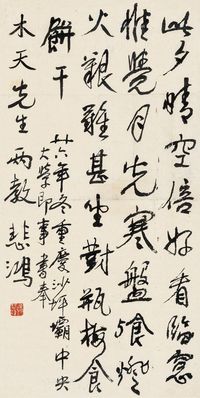 此夕晴空倍好看臨窗
惟覺月光寒盤飧燈
火艱難甚坐對瓶梅食
餅干
廿六年冬重慶沙坪壩中央
大學即事書奉
木天先生兩教 悲鴻